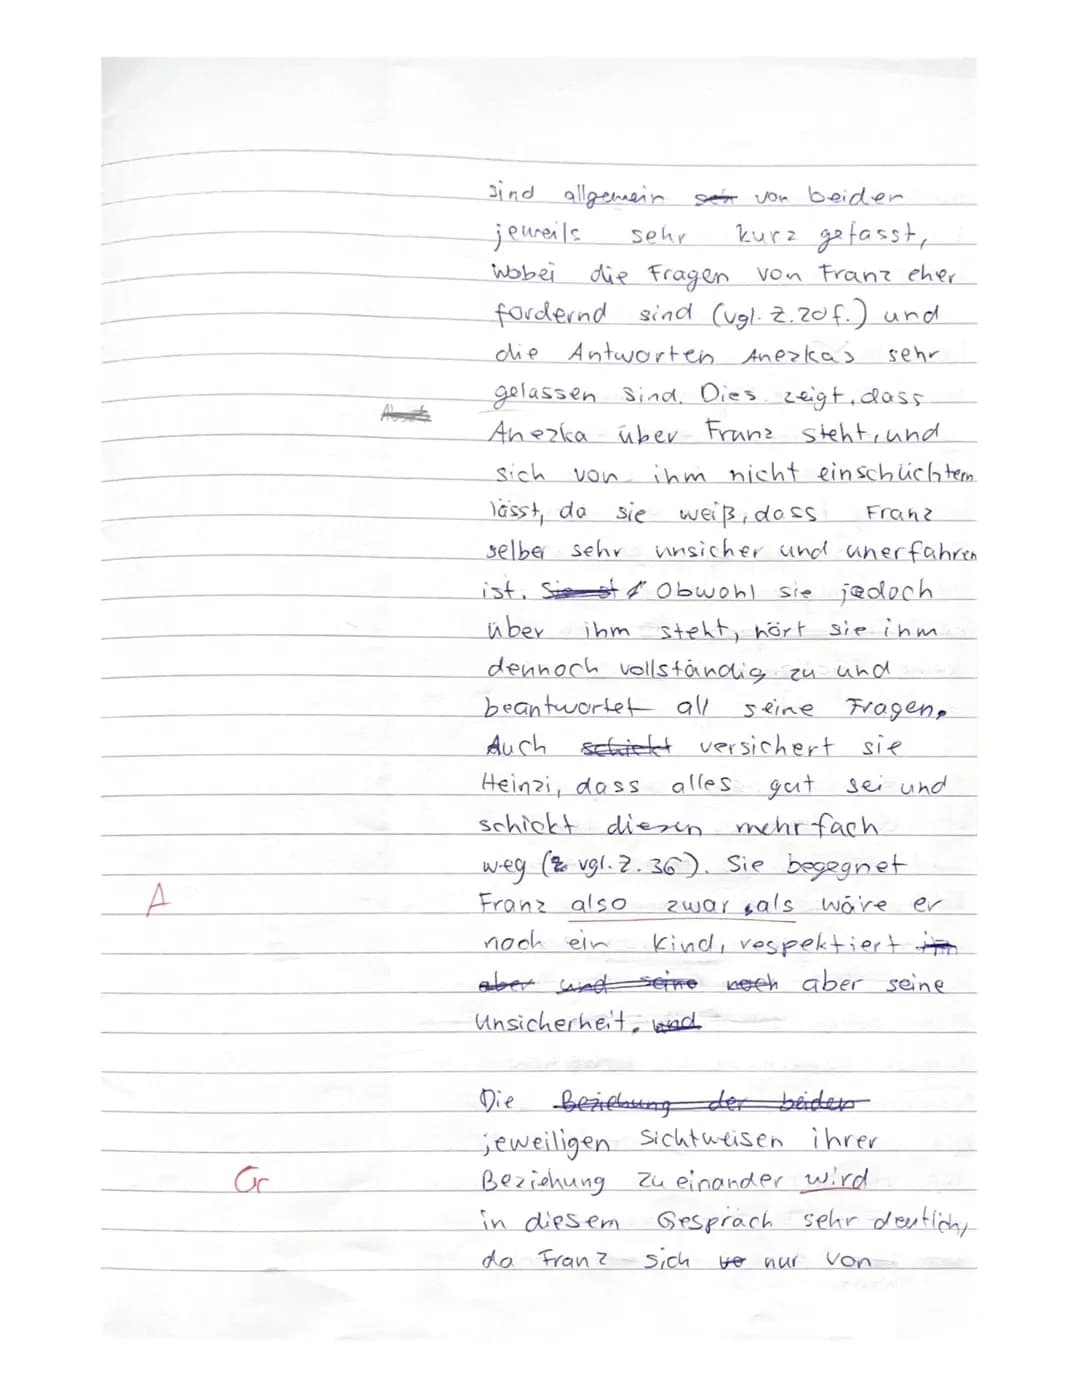 sind allgemein von beiden
jeweils sehr kurz gefasst,
wobei die Fragen von Franz eher
fordernd sind (vgl. Z.20f.) und
die Antworten Anezkas sehr
gelassen sind. Dies zeigt, dass
Anezka über Franz steht, und
sich von ihm nicht einschüchtern
lässt, da sie weiß, dass Franz
selber sehr unsicher und unerfahren
ist. Obwohl sie jedoch
über ihm steht, hört sie ihm
dennoch vollständig zu und
beantwortet all seine Fragen.
Auch schickt versichert sie
Heinzi, dass alles gut sei und
schickt diesen mehrfach
weg (vgl. Z. 36). Sie begegnet
A Franz also zwar, als wäre er
noch ein Kind, respektiert
aber und seine noch aber seine
Unsicherheit. und
Die Beziehung der beiden
jeweiligen Sichtweisen ihrer
Gr Beziehung zu einander wird
in diesem Gespräch sehr deutlich,
da Franz sich nur von